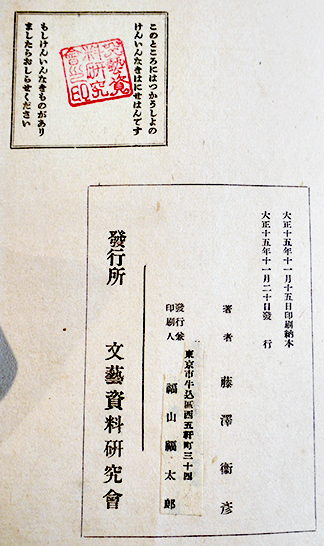 このところにはつかうしよの
けんいんなきはにせはんです
文藝資
料研究
會之印
もしけんいんなきものがあり
ましたらおしらせください
大正十五年十一月十五日印刷納本
大正十五年十一月二十日發行
著者 藤澤衞彦
發行兼
印刷人
東京市牛込區西五軒町三十四
福山福太郎
發行所 文藝資料研究會